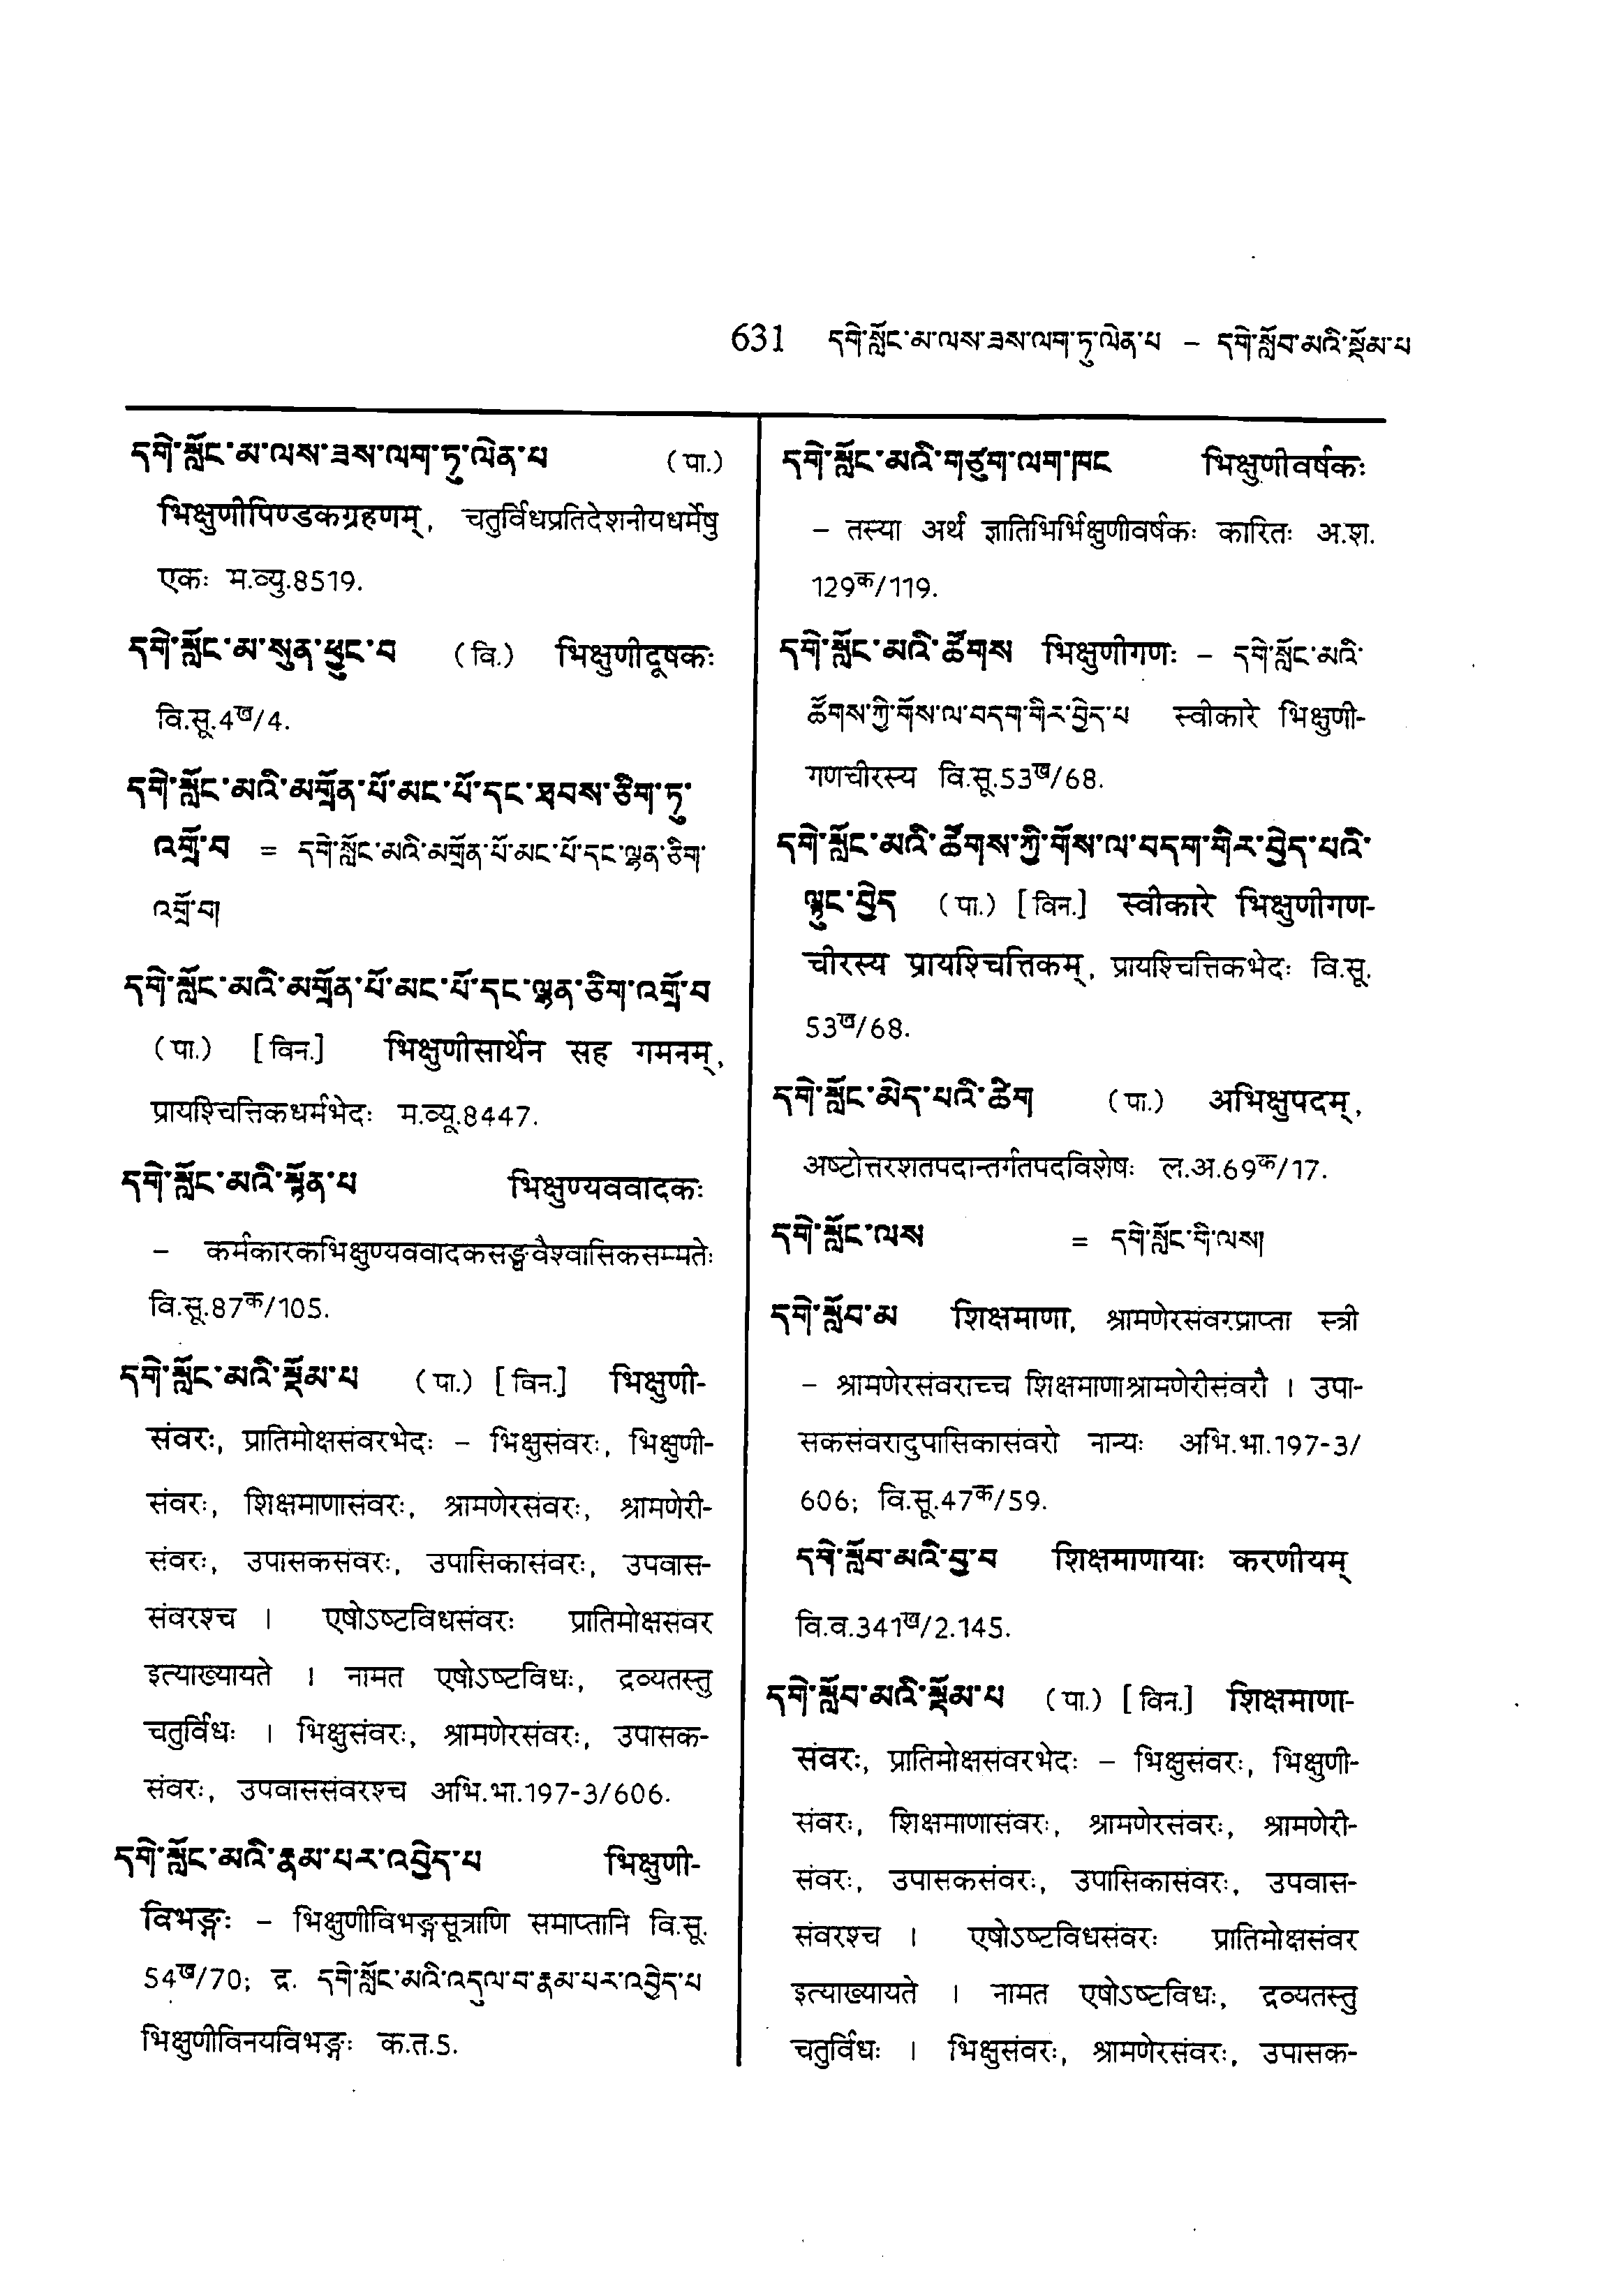 631 དགེ་སློང་མ་ལས་ཟས་ལག་ཏུ་ལེན་པ – དགེ་སློབ་མའི་སྡོམ་པ
དགེ་སློང་མ་ལས་ཟས་ལག་ཏུ་ལེན་པ (पा.)
भिक्षुणीपिण्डकग्रहणम्, चतुर्विधप्रतिदेशनीयधर्मेषु
एकः म.व्यु.8519.
དགེ་སློང་མ་སུན་ཕྱུང་བ (वि.) भिक्षुणीदूषकः
वि.सू.4ख/4.
དགེ་སློང་མའི་མགྲོན་པོ་མང་པོ་དང་ཐབས་ཅིག་ཏུ་
འགྲོ་བ = དགེ་སློང་མའི་མགྲོན་པོ་མང་པོ་དང་ལྷན་ཅིག་
འགྲོ་བ།
དགེ་སློང་མའི་མགྲོན་པོ་མང་པོ་དང་ལྷན་ཅིག་འགྲོ་བ
(पा.) [विन.] भिक्षुणीसार्थेन सह गमनम्,
प्रायश्चित्तिकधर्मभेदः म.व्यू.8447.
དགེ་སློང་མའི་སྟོན་པ भिक्षुण्यववादकः
– कर्मकारकभिक्षुण्यववादकसङ्घवैश्वासिकसम्मतेः
वि.सू.87क/105.
དགེ་སློང་མའི་སྡོམ་པ (पा.) [विन.] भिक्षुणी-
संवरः, प्रातिमोक्षसंवरभेदः – भिक्षुसंवरः, भिक्षुणी-
संवरः, शिक्षमाणासंवरः, श्रामणेरसंवरः, श्रामणेरी-
संवरः, उपासकसंवरः, उपासिकासंवरः, उपवास-
संवरश्च । एषोऽष्टविधसंवरः प्रातिमोक्षसंवर
इत्याख्यायते । नामत एषोऽष्टविधः, द्रव्यतस्तु
चतुर्विधः । भिक्षुसंवरः, श्रामणेरसंवरः, उपासक-
संवरः, उपवाससंवरश्च अभि.भा.197-3/606.
དགེ་སློང་མའི་རྣམ་པར་འབྱེད་པ भिक्षुणी-
विभङ्गः – भिक्षुणीविभङ्गसूत्राणि समाप्तानि वि.सू.
54ख/70; द्र. དགེ་སློང་མའི་འདུལ་བ་རྣམ་པར་འབྱེད་པ
भिक्षुणीविनयविभङ्गः क.त.5.
དགེ་སློང་མའི་གཙུག་ལག་ཁང भिक्षुणीवर्षकः
– तस्या अर्थे ज्ञातिभिर्भिक्षुणीवर्षकः कारितः अ.श.
129क/119.
དགེ་སློང་མའི་ཚོགས भिक्षुणीगणः – དགེ་སློང་མའི་
ཚོགས་ཀྱི་གོས་ལ་བདག་གིར་བྱེད་པ स्वीकारे भिक्षुणी-
गणचीरस्य वि.सू.53ख/68.
དགེ་སློང་མའི་ཚོགས་ཀྱི་གོས་ལ་བདག་གིར་བྱེད་པའི་
ལྟུང་བྱེད (पा.) [विन.] स्वीकारे भिक्षुणीगण-
चीरस्य प्रायश्चित्तिकम्, प्रायश्चित्तिकभेदः वि.सू.
53ख/68.
དགེ་སློང་མེད་པའི་ཚིག (पा.) अभिक्षुपदम्,
अष्टोत्तरशतपदान्तर्गतपदविशेषः ल.अ.69क/17.
དགེ་སློང་ལས = དགེ་སློང་གི་ལས།
དགེ་སློབ་མ शिक्षमाणा, श्रामणेरसंवरप्राप्ता स्त्री
– श्रामणेरसंवराच्च शिक्षमाणाश्रामणेरीसंवरौ । उपा-
सकसंवरादुपासिकासंवरो नान्यः अभि.भा.197-3/
606; वि.सू.47क/59.
དགེ་སློབ་མའི་བྱ་བ शिक्षमाणायाः करणीयम्
वि.व.341ख/2.145.
དགེ་སློབ་མའི་སྡོམ་པ (पा.) [विन.] शिक्षमाणा-
संवरः, प्रातिमोक्षसंवरभेदः – भिक्षुसंवरः, भिक्षुणी-
संवरः, शिक्षमाणासंवरः, श्रामणेरसंवरः, श्रामणेरी-
संवरः, उपासकसंवरः, उपासिकासंवरः, उपवास-
संवरश्च । एषोऽष्टविधसंवरः प्रातिमोक्षसंवर
इत्याख्यायते । नामत एषोऽष्टविधः, द्रव्यतस्तु
चतुर्विधः । भिक्षुसंवरः, श्रामणेरसंवरः, उपासक-